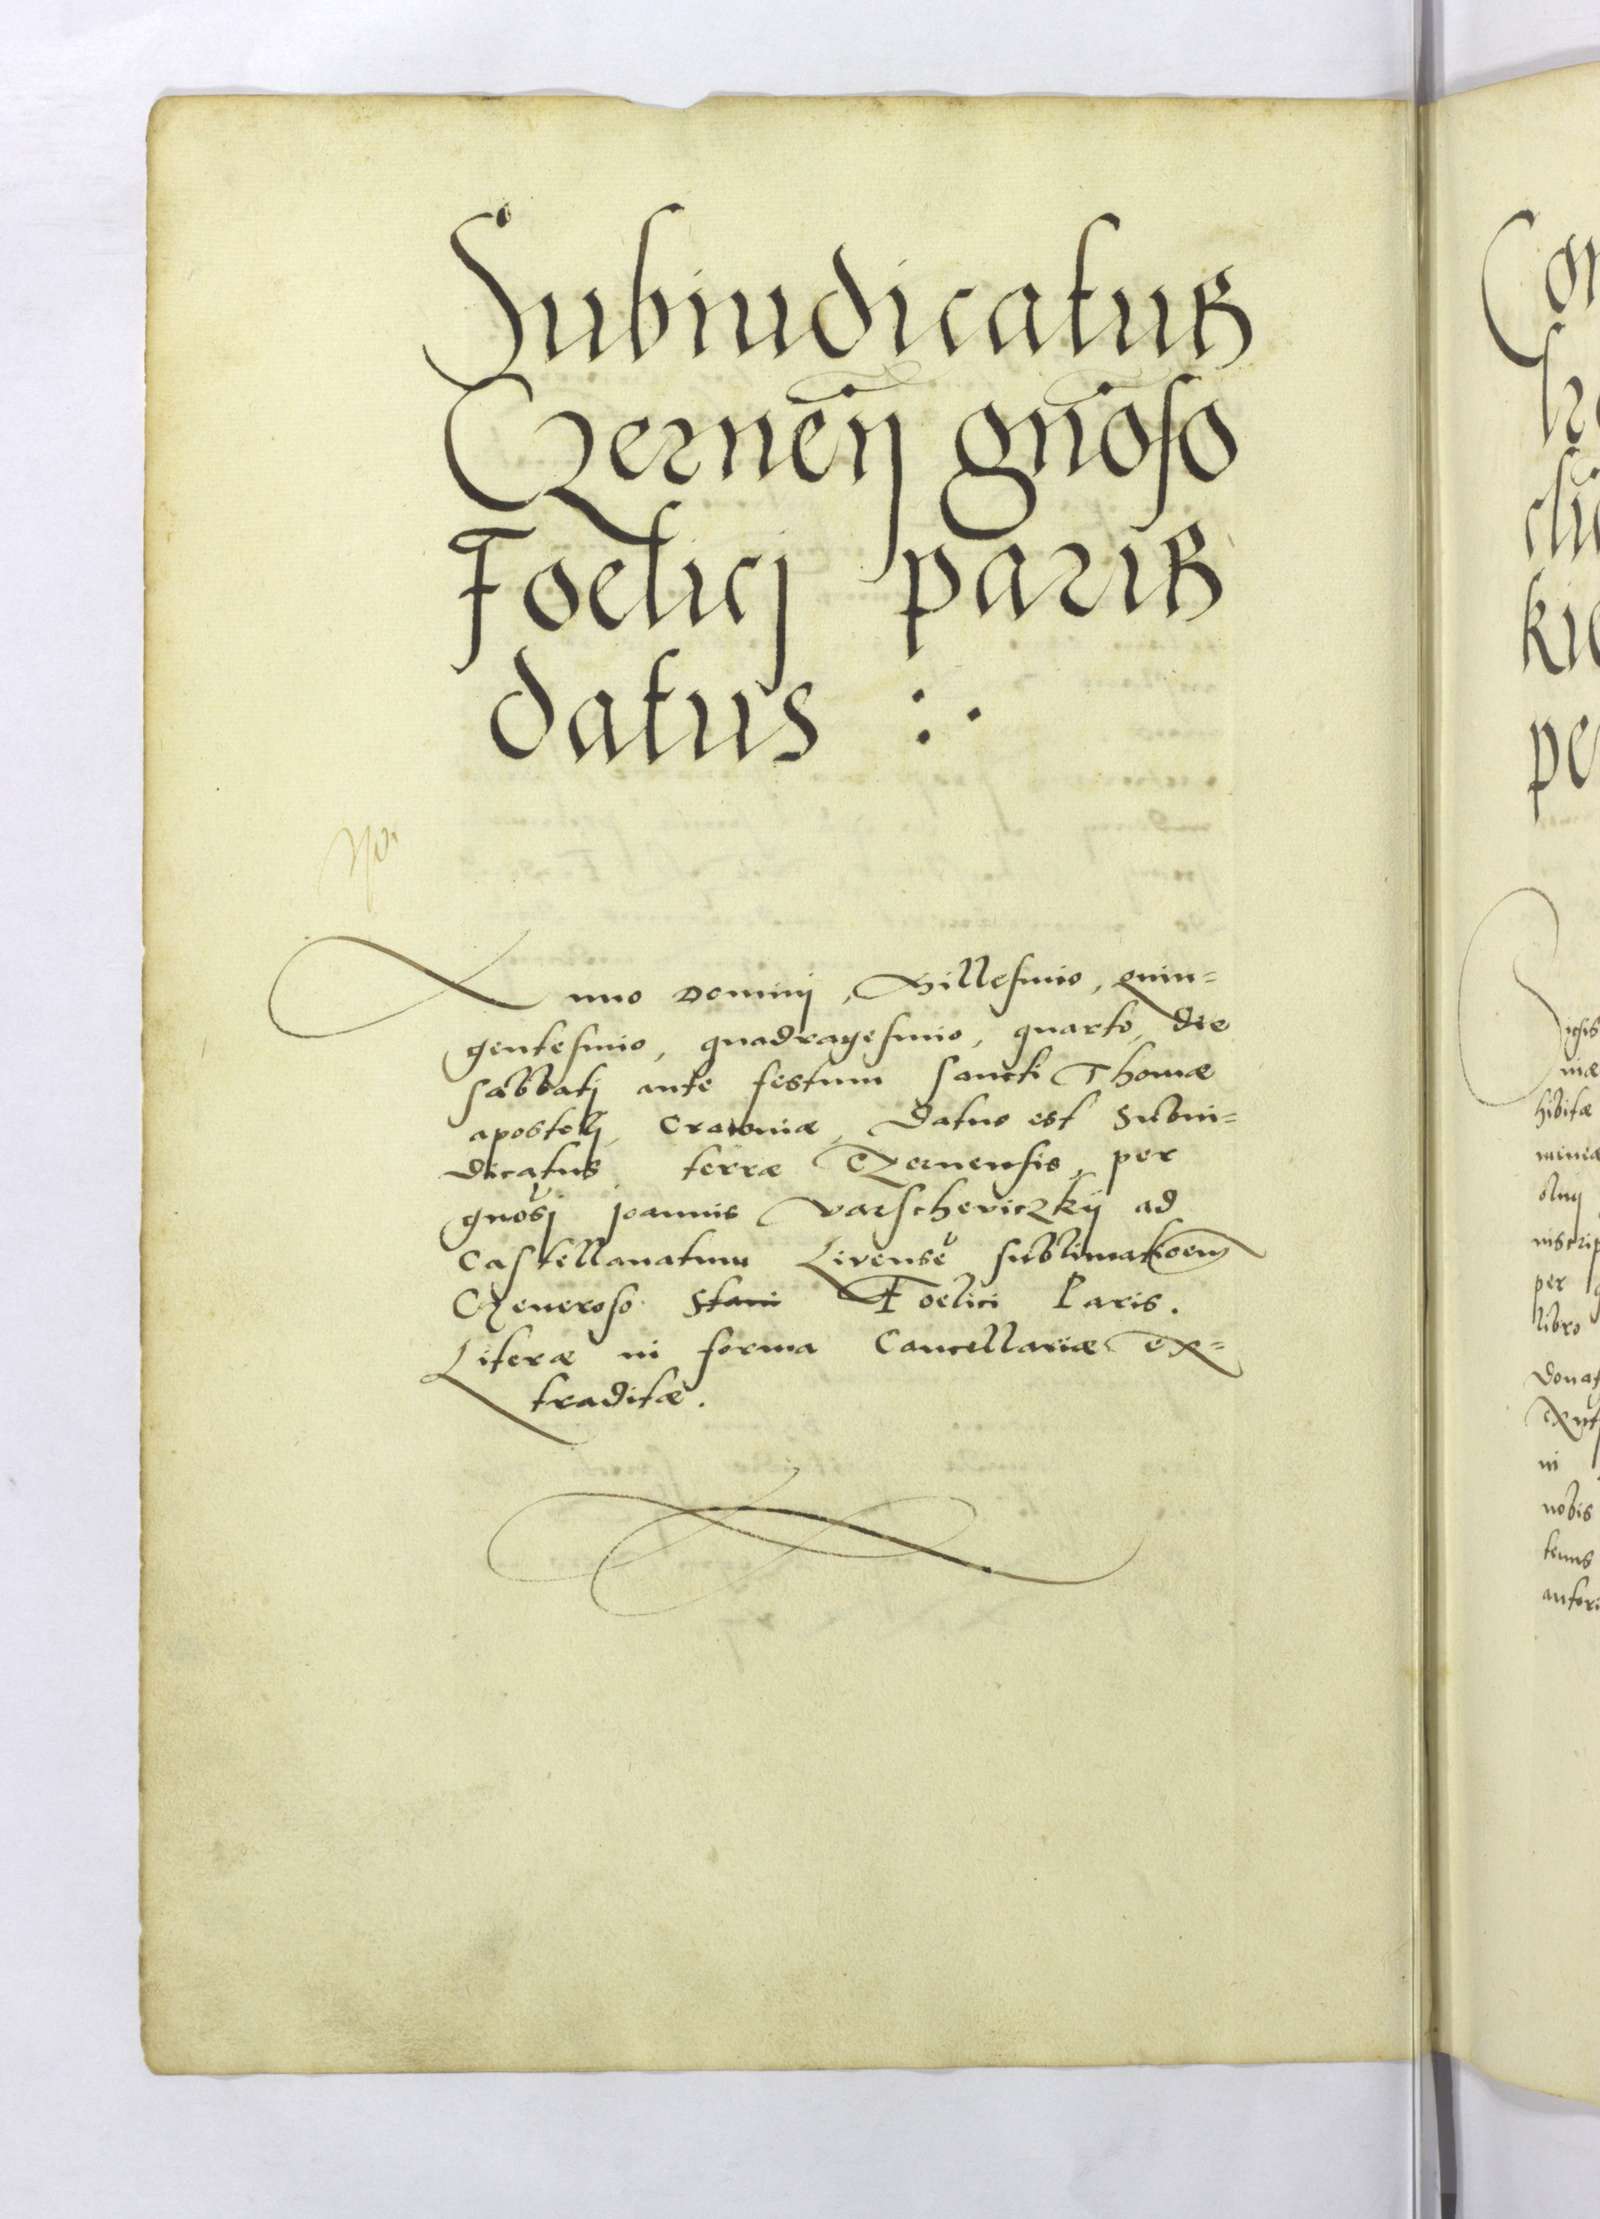 Subiudicatus
Czerneñ gnoso
Foelicj paris
datus :·
Anno Dominj, Millesimo, quin=
gentesimo, quadragesimo, quarto, die
sabbatj ante festum sancti Thomæ
apostolj, Cracoviæ, datus est Subiu=
dicatus terræ Czernensis, per
gnosj Joannis Varscheviczkij ad
Castellanatum Livensē sublimatioem
Generoso Stani Foelici Paris.
Literæ in forma Cancellariæ ex=
traditæ.
Con
cli
kie
per
igis
niæ
hibitæ
mineæ
olnij
niscrip
per g
libro
donat
in
nobis
tenus